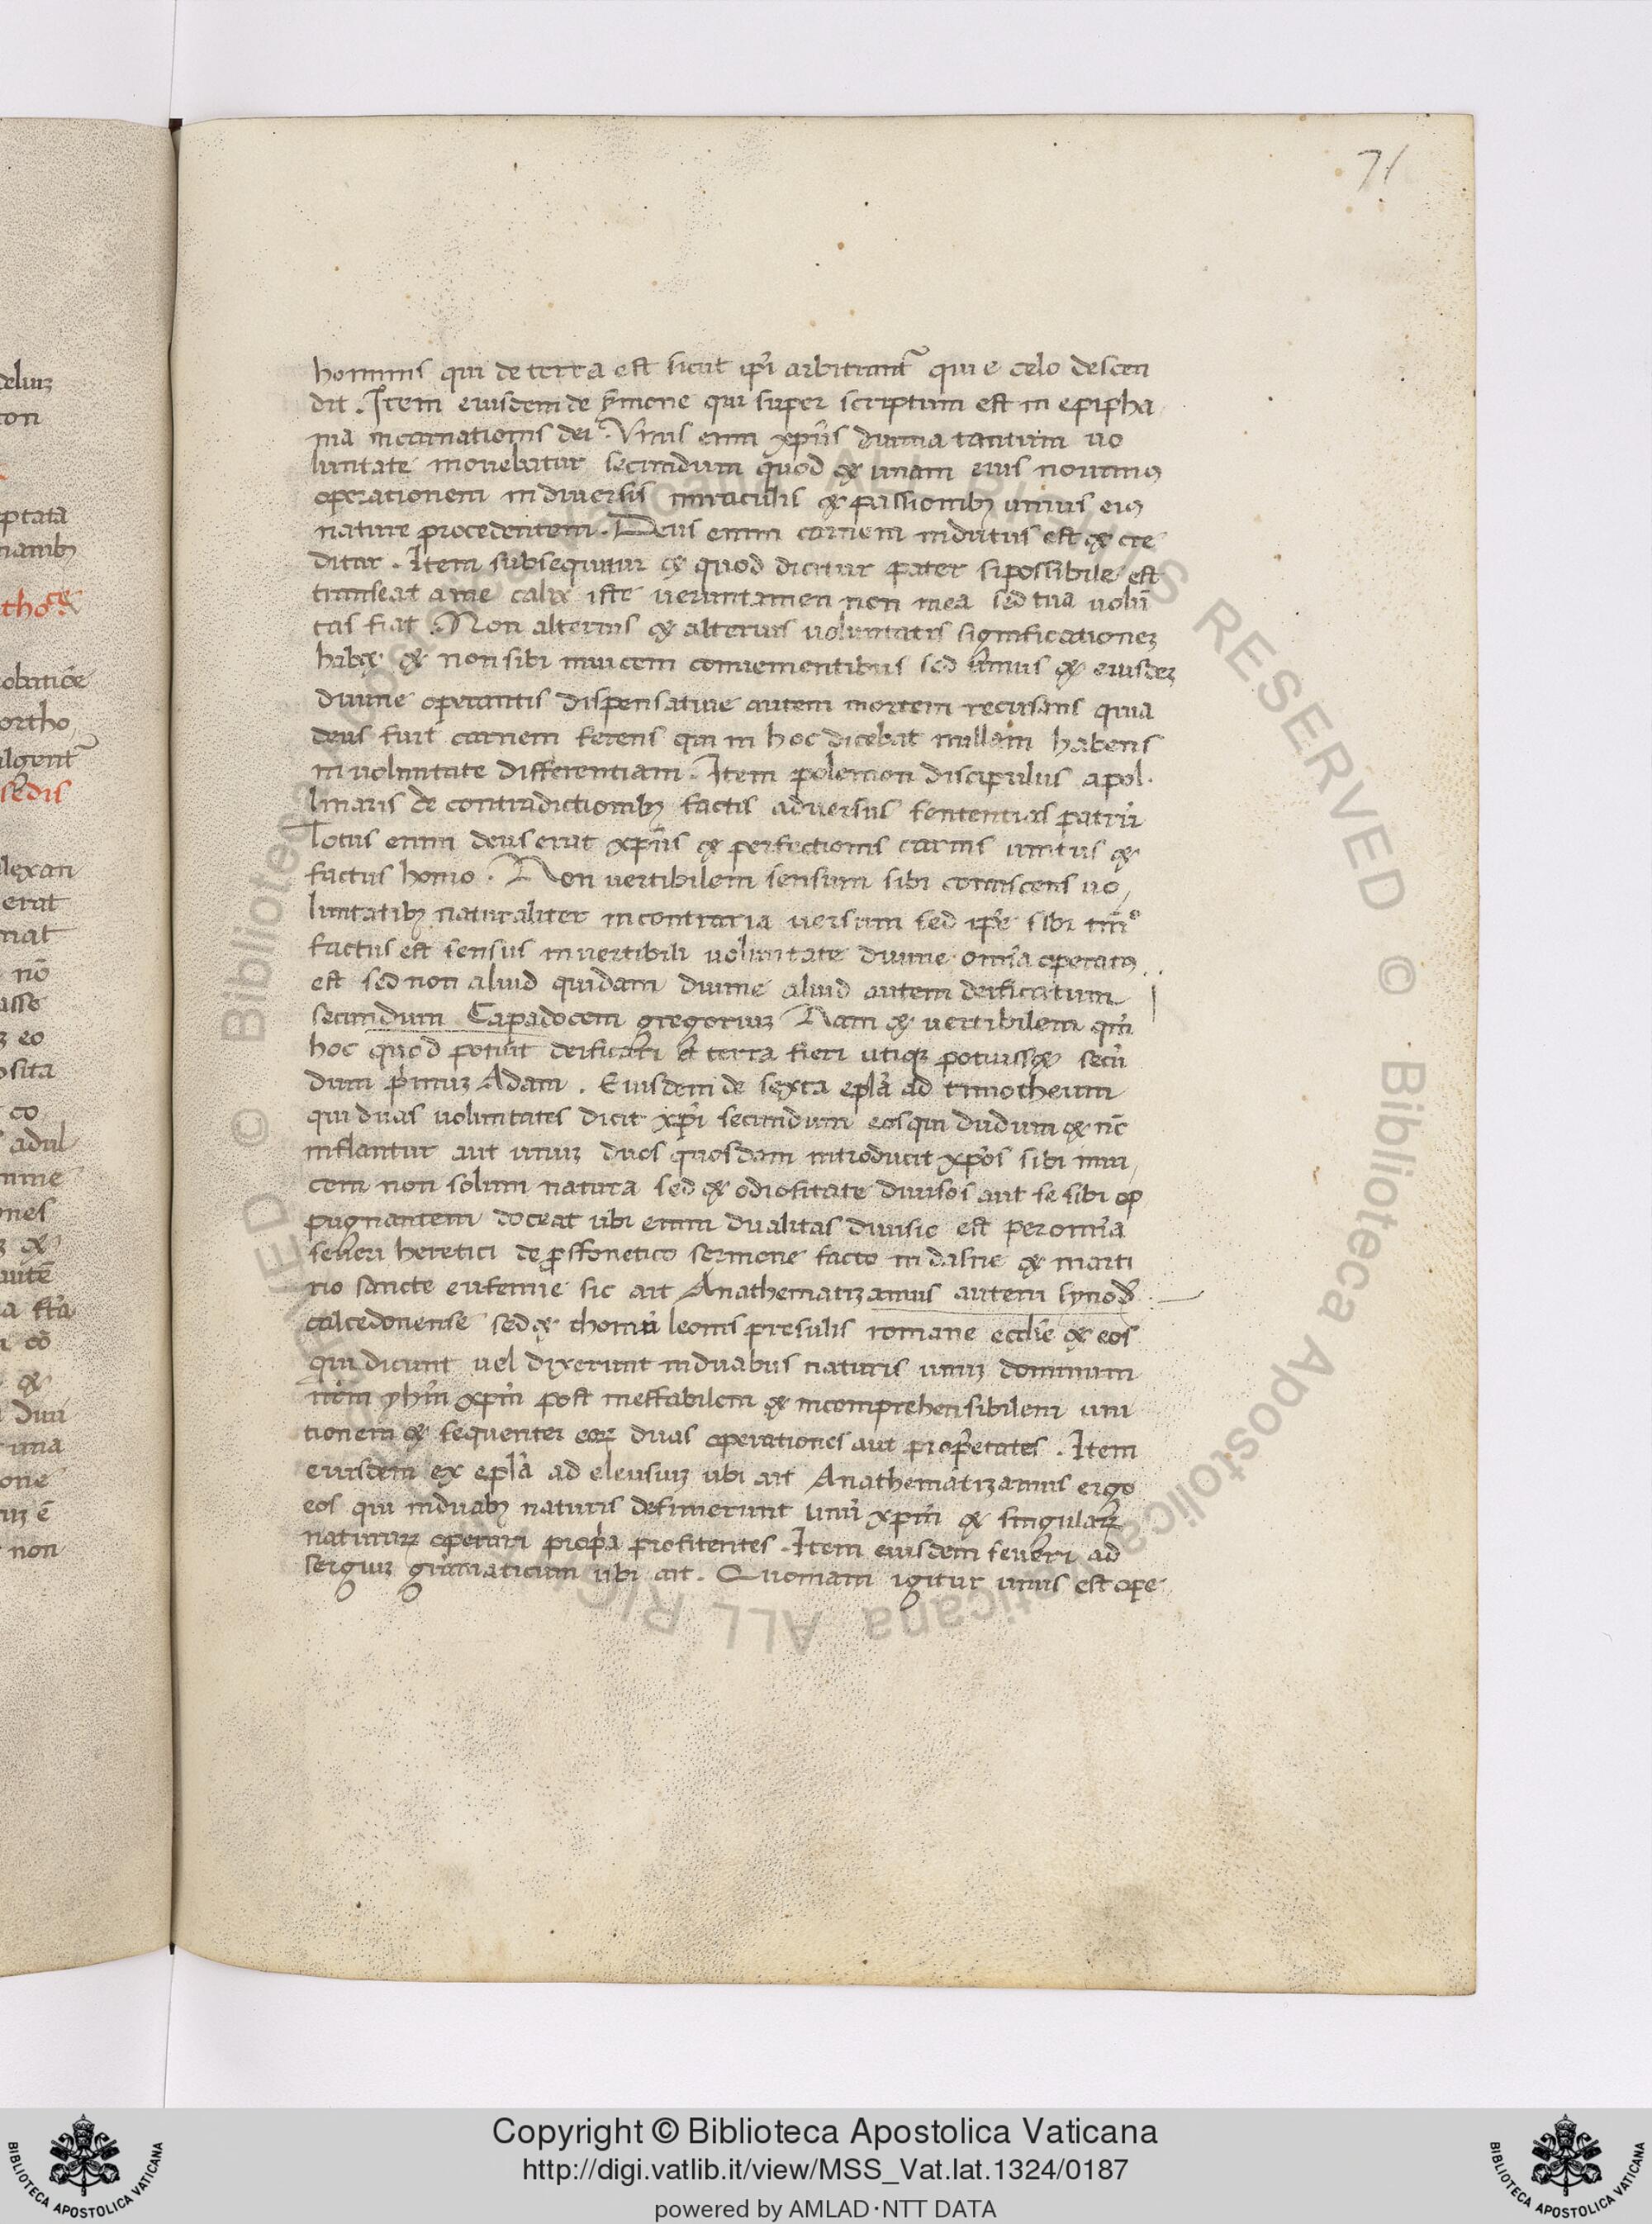 71
hominis qui de terra est sicut ip̄i arbitrant᷑ qui e celo descen
dit . Item eiusdem de ẙmone qui super scriptum est in epipha
nia incarnationis dei . Unus enim xp̄us diuina tantum uo
luntate mouebatur secundum quod & unam eius nouimꝰ
operationem in diuersis miraculis & passionibꝫ unius eiꝰ
nature procedentem . Deus enim carnem indutus est & cre
ditur . Item subsequitur & quod dicitur pater si possibile est
transeat a me calix iste ueruntamen non mea sed tua uolū
tas fiat . Non alterius & alterius uoluntatis significationeꝫ
hab& & non sibi inuicem conuenientibus sed unius & eiusdeꝫ
diuine operantis dispensatiue autem mortem recusans quia
deus fuit carnem ferens qui in hoc dicebat nullam habens
in uoluntate differentiam . Item polemon discipulus apol
linaris de contradictionibꝫ factis aduersus sententias patrū
Totus enim deus erat xp̄us & perfectionis carnis unitus &
factus homo . Non uertibilem sensum sibi coniscens uo
luntatibꝫ naturaliter in contraria uersum sed ip̄e sibi tm̄ᵒ
factus est sensus inuertibili uoluntate diuine om̄ia operatꝰ
est sed non aliud quidam diuine aliud autem deificatum
secundum Capadocem gregoriuꝫ Nam & uertibilem qm̄
hoc quod potuit deificari & terra fieri utiqꝫ potuiss& secū
dum p̄imuꝫ Adam . Eiusdem de sexta epl̄a ad timotheum
qui duas uoluntates dicit xp̄i secundum eos qui dudum & nc̄
inflantur aut unuꝫ duos quosdam introducit xp̄os sibi inui
cem non solum natura sed & odiositate diuisos aut se sibi op
pugnantem doceat ubi enim dualitas diuisio est per om̄ia
seueri heretici de ꝓsfonetico sermone facto in dafne & marti
rio sancte eufemie sic ait Anathematizamus autem synod̄
calcedonense sed & thomū leonis presulis romane eccl̄ie & eos
qui dicunt uel dixerunt in duabus naturis unuꝫ dominum
nr̄m yhm̄ xpm̄ post ineffabilem & incomprehensibilem uni
tionem & sequenter eoꝝ duas operationes aut prop̄etates . Item
eiusdem ex epl̄a ad eleusiuꝫ ubi ait Anathematizamus ergo
eos qui in duabꝫ naturis definierunt unū xpm̄ & singulaꝝ
naturaꝝ operari prop̄a profitentes . Item eiusdem seueri ad
sergiuꝫ gr̄amaticum ubi ait . Quoniam igitur unus est ope
Copyright © Biblioteca Apostolica Vaticana
http://digi.vatlib.it/view/MSS_Vat.lat.1324/0187
powered by AMLAD·NTT DATA